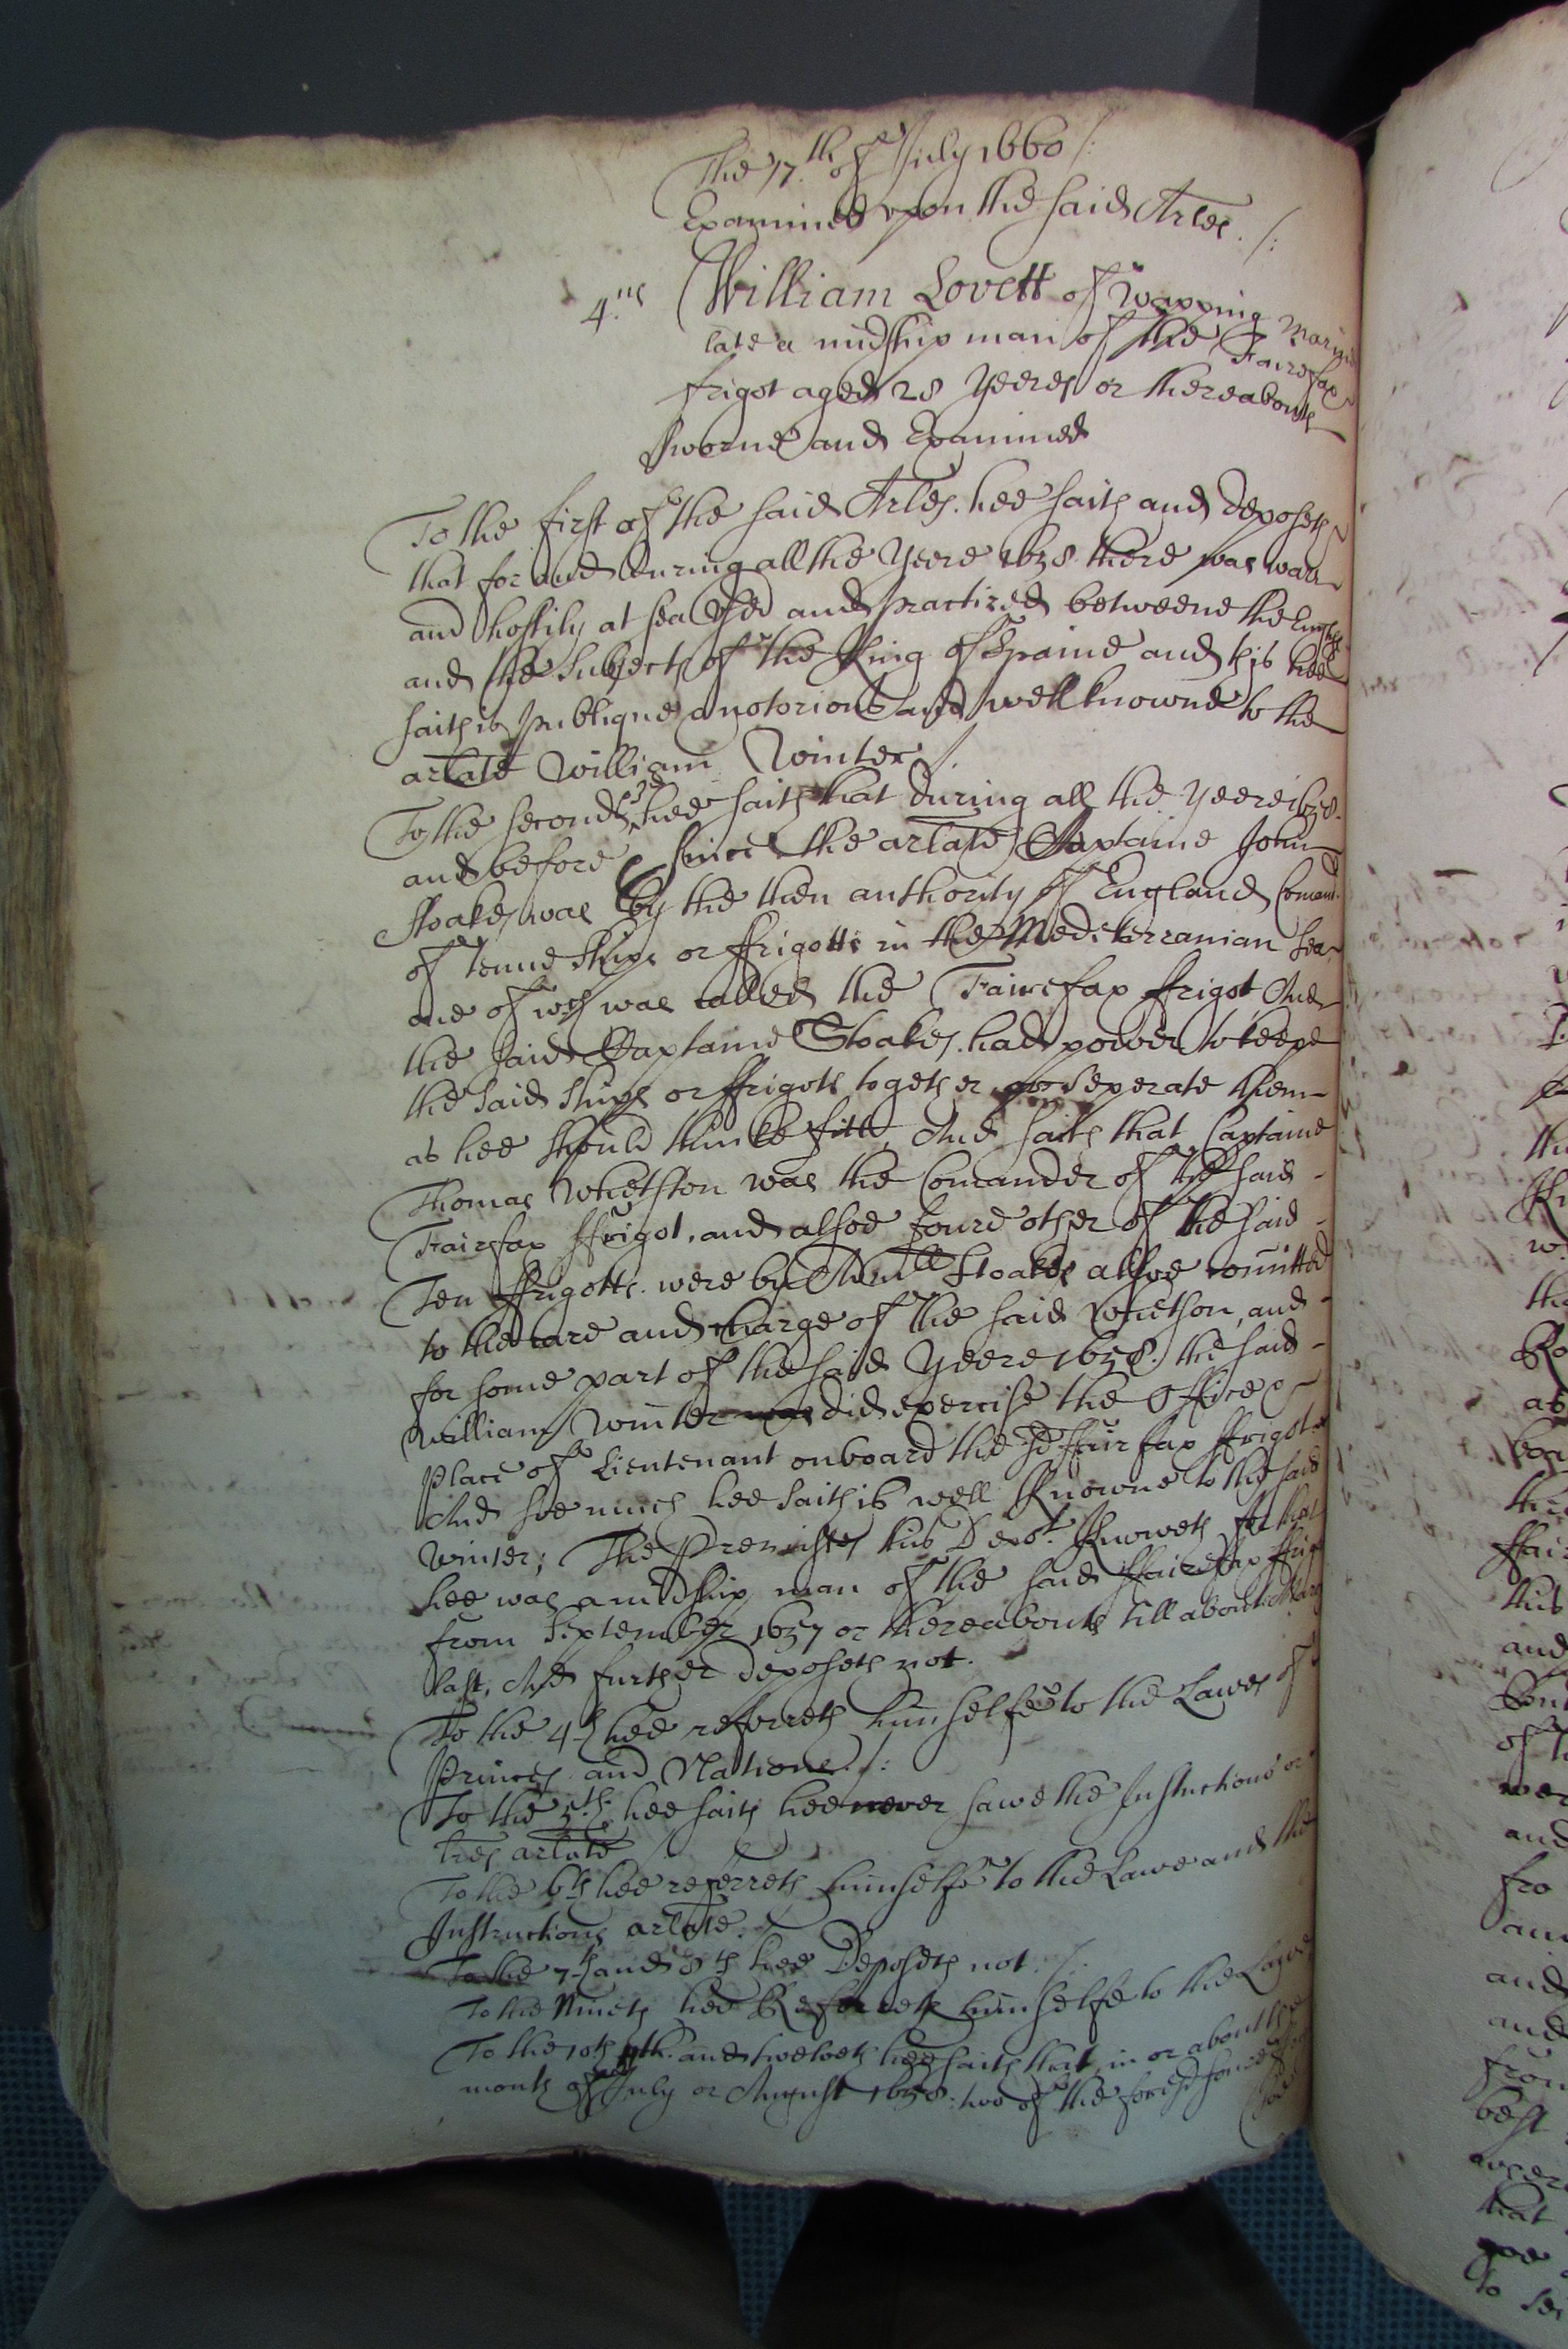 The 17.th of July 1660 /:
Examined upon the said Arles. /:
4.us William Lovett of Wapping Marin
late a midshipman of the Fairefax
frigot aged 28 yeeres or thereabouts
sworne and Examined
To the first of the said Arles. hee saith and deposeth
that for and during all the yeere 1658 there was warr
and hostility at sea used and practized betweene the English
and the subjects of the King of Spaine and this hee
saith is publique, notorious and well knowne to the
arlate William Winter /.
To the second & 3d hee saith that during all the yeere 1658.
and before & since the arlate Captaine John
Stoakes was by the then authority of England Comand.
of tenne ships or ffrigotts in the Mediterranian sea
one of wch was called the Fairefax ffrigot And
the said Captaine Stoakes. had power to keepe
the said ships or ffrigots together or seperate them
as hee should thinke fitt, And saith that Captaine
Thomas Whetston was the Comander of the said -
Fairfax ffrigot, and alsoe foure other of the said -
Ten ffrigotts were by Admll Stoakes alsoe comitted
to the care and charge of the said Whetson, and -
for some part of the said yeere 1658. the said -
William Winter was did exercise the Office &
place of Lieutenant onboard the sd ffairfax ffrigot
And soe much hee saith is well knowne to the said
Winter; The Premisses this Depot. knoweth for that
hee was a midship man of the said ffairefax ffrig
from September 1657 or thereabouts till about
last, And further deposeth not.
To the 4th hee referreth himselfe to the Lawes of
Princes and Nations./:
To the 5th. hee saith hee never sawe the Instructions or
tres arlate
To the 6th hee referreth himselfe to the Lawe and the
Instructions arlate.
To the 7th and 8th hee Deposeth not /:
To the Nineth hee Referreth himselfe to the Lawe
To the 10th 11th. and twelveth hee saith that in or about the
month of July or August 1658: two of the foresd foure